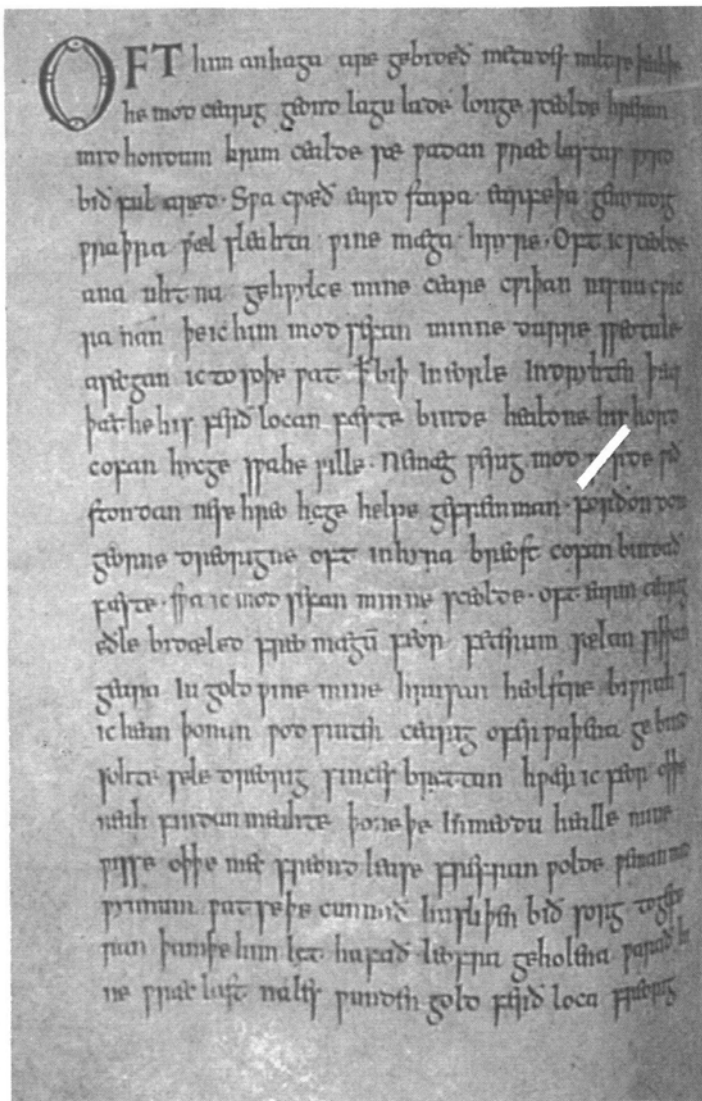 OFT him anhaga are gebideð metudes miltse þeahþe
he mod cearig geond lagu lade longe sceolde hreran
mid hondum hrim cealde sæ wadan wræc lastas wyrd
bið ful aræd · Swa cwæð eard stapa earfeþa gemyndig
wraþra wæl sleahta wine mæga hryre · Oft ic sceolde
ana uhtna gehwylce mine ceare cwiþan nis nu cwic
ra nan þe ic him mod sefan minne durre sweotule
asecgan ic to soþe wat ꝥ biþ in eorle indryhten þeaw
þæt he his ferð locan fæste binde healdne his hord
cofan hycge swa he wille · Ne mæg werig mod wyrde wið
stondan ne se hreo hyge helpe gefremman · forðon dom
georne dreorigne oft in hyra breost cofan bindað
fæste · swa ic mod sefan minne sceolde · oft earm cearig
eðle bidæled freo magū feor feterum sælan siþþan
geara iu gold wine mine hrusan heolstre biwrah ⁊
ic hean þonan wod winter cearig ofer waþena gebind
sohte sele dreorig sinces bryttan hwær ic feor oþþe
neah findan meahte þone þe in meodu healle mine
wisse oþþe mec freond lease frefran wolde weman mid
wynnum wat se þe cunnað hu sliþen bið sorg to gefe
ran þam þe him lyt hafað leofra geholena warað hi
ne wræc last nales wunden gold ferð loca freorig